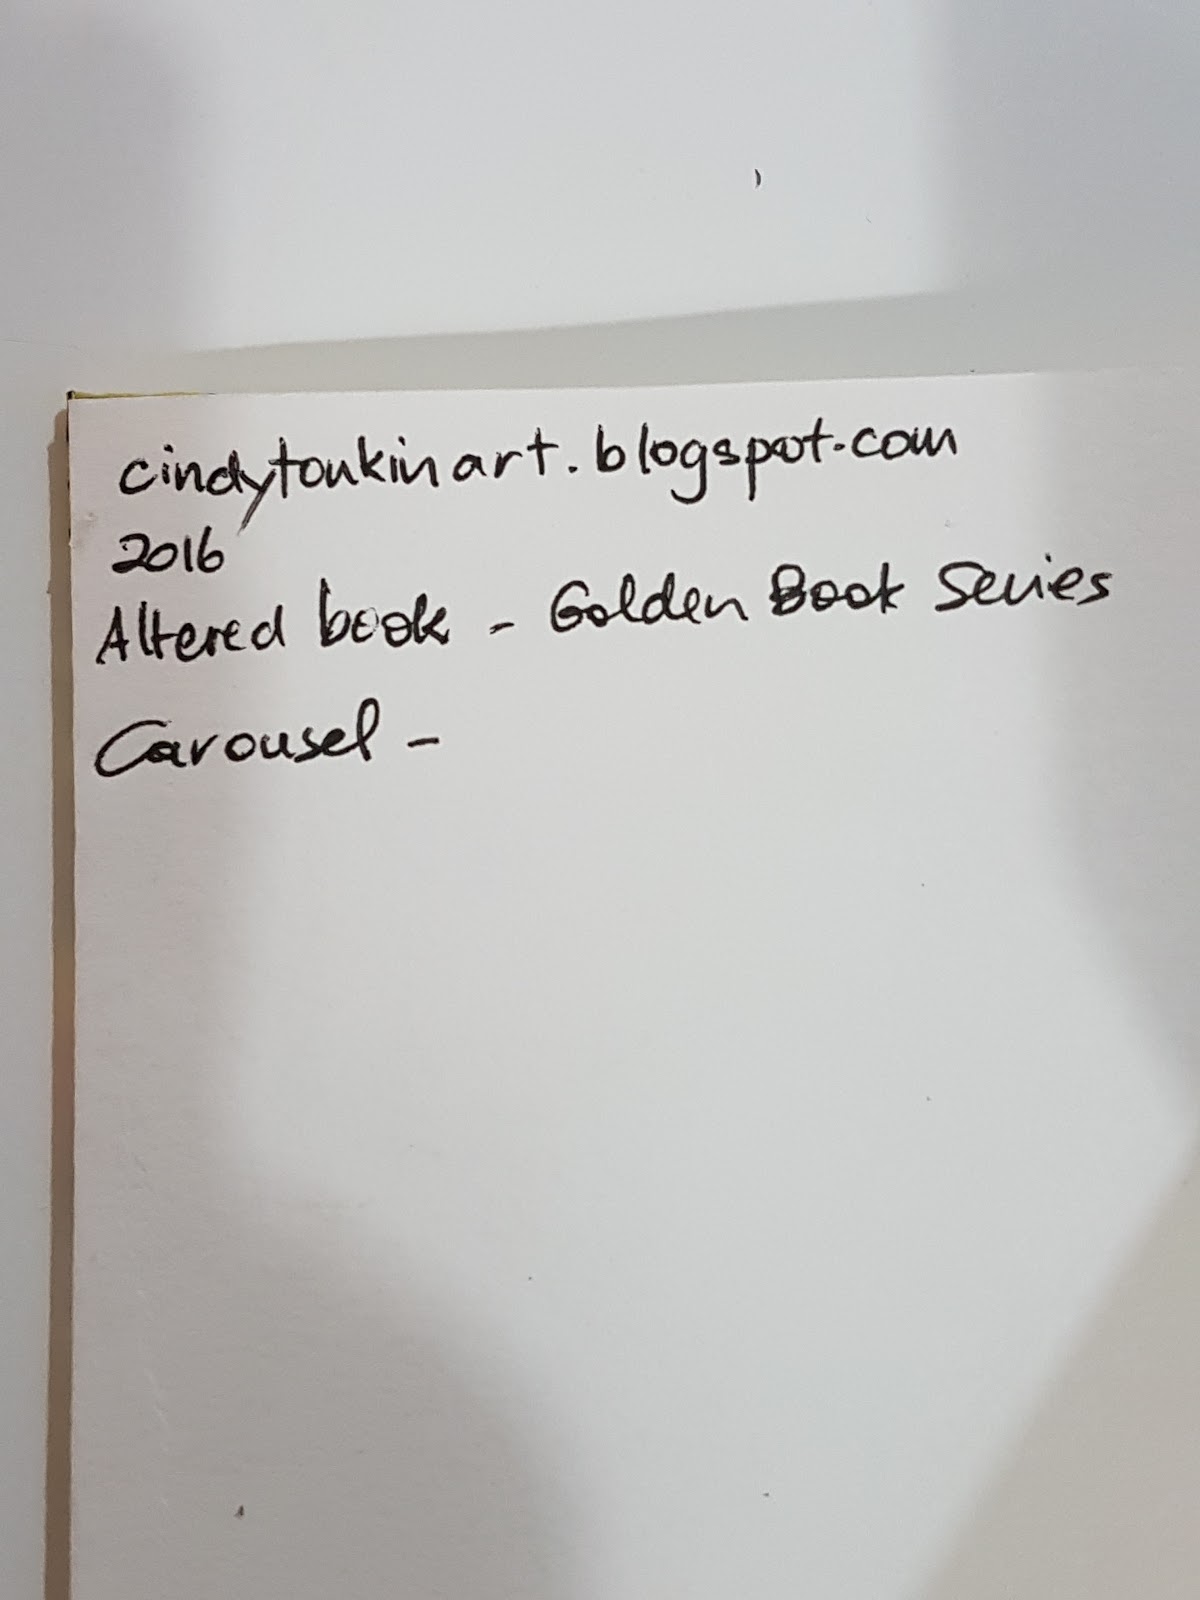 cindytonkinart.blogspot.com
2016
Altered book - Golden Book Series
Carousel -